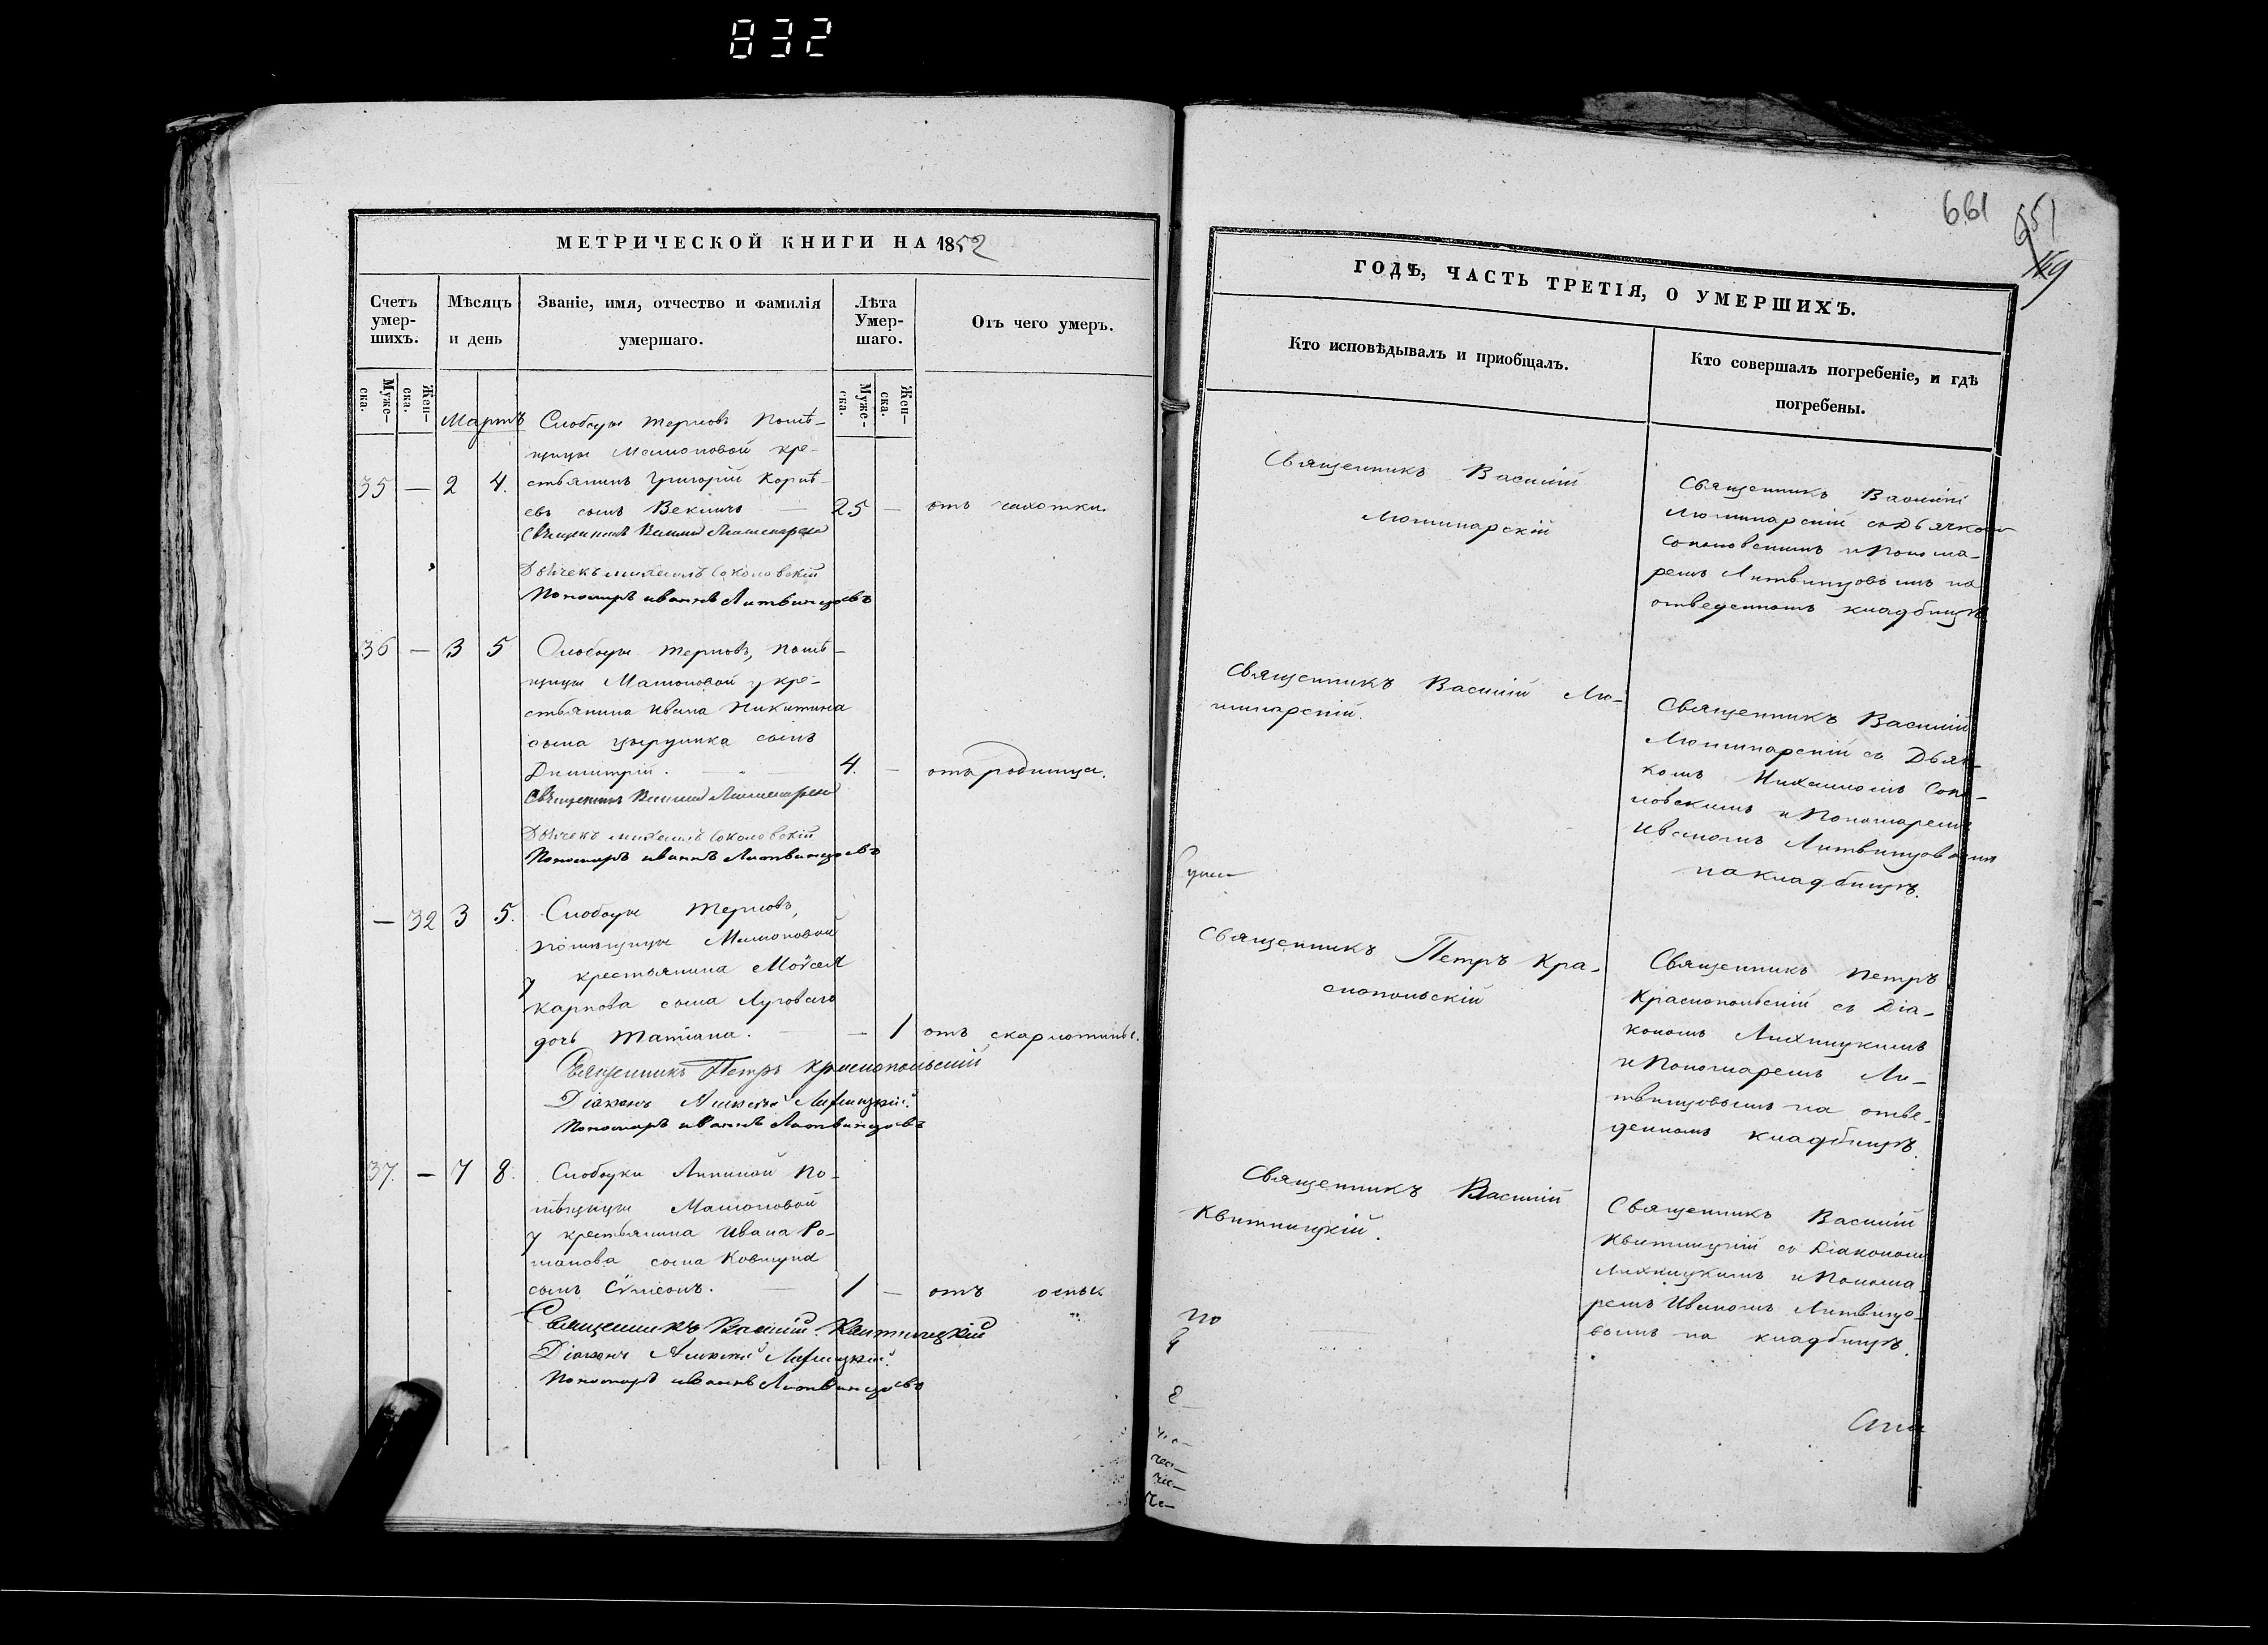 832
МЕТРИЧЕСКОЙ КНИГИ НА 1852
Счетъ умер-шихъ.
Мѣсяцъ и день
Званіе, имя, отчество и фамилія умершаго.
Лѣта Умер-шаго.
Отъ чего умеръ.
Муже-ска.
Жен-ска.
Муже-ска.
Жен-ска.
Мартъ
Слободы Терновъ Помѣ-
щицы Мамоновой кре-
35 — 2 4. стьянинъ Григорій Корнѣ-
евъ сынъ 25 — отъ сухотки.
Священникъ Василий
Дьячекъ михаилъ Соколовскій
Пономарь иваннъ Литвинцовъ
36 — 3 5 Слободы Терновъ, помѣ-
щицы Мамоновой у кре-
стьянина Ивана Никитина
сына сынъ
Димитрій. — 4. — отъ родимца.
Священникъ Василий
Дьячекъ михаилъ Соколовскій
Пономарь иваннъ Литвинцовъ
— 32 3 5. Слободы Терновъ,
помѣщицы Мамоновой
у крестьянина Моѵсея
Карпова сына Луговаго
дочь Татіана. — — 1 отъ скарлотины.
Священникъ Петръ Краснопольскій
Діаконъ Алексѣй Лихницкій.
Пономарь иваннъ Литвинцовъ
37. — 7 8. Слободки Липиной По-
мѣщицы Мамоновой
у крестьянина Ивана Ро-
манова сына Ковтуна
сынъ Сѵмеонъ. — 1 — отъ оспы
Священникъ Василій Квитницкій
Діаконъ Алексѣй Лихницкій.
Пономарь иваннъ Литвинцовъ
661
651
ГОДѢ, ЧАСТЬ ТРЕТІЯ, О УМЕРШИХЪ.
Кто исповѣдывалъ и пріобщалъ.
Кто совершалъ погребеніе, и гдѣ погребены.
Священникъ Василій
Люминарскій
Священникъ Василій
Люминарскій съ Дьячкомъ
Соколовскимъ и Понома-
ремъ Литвинцовымъ на
отведенномъ кладбищѣ
Священникъ Василій Лю-
минарскій.
Священникъ Василій
Люминарскій съ Дьяч-
комъ Михаиломъ Соко-
ловскимъ и Пономаремъ
Иваномъ Литвинцовымъ
на кладбищѣ.
Священникъ Петръ Кра-
снопольскій
Священникъ Петръ
Краснопольскій съ Діа-
кономъ Лихницкимъ
и Пономаремъ Ли-
твинцовымъ на отве-
денномъ кладбищѣ.
Священникъ Василій
Квитницкій.
Священникъ Василій
Квитницкій съ Діакономъ
Лихницкимъ и Понома
ремъ Иваномъ Литвинцо-
вымъ на кладбищѣ.